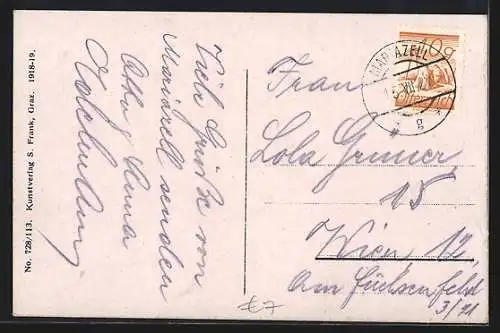 No. 728/113. Kunstverlag S. Frank, Graz. 1918-19.
Viele Grüße von
Mariazell senden
Otto u. Anna
MARIAZELL
10g
g
Frau
Lola Gruner
15
Wien 12,
Am Fuchsenfeld
3/21
€7